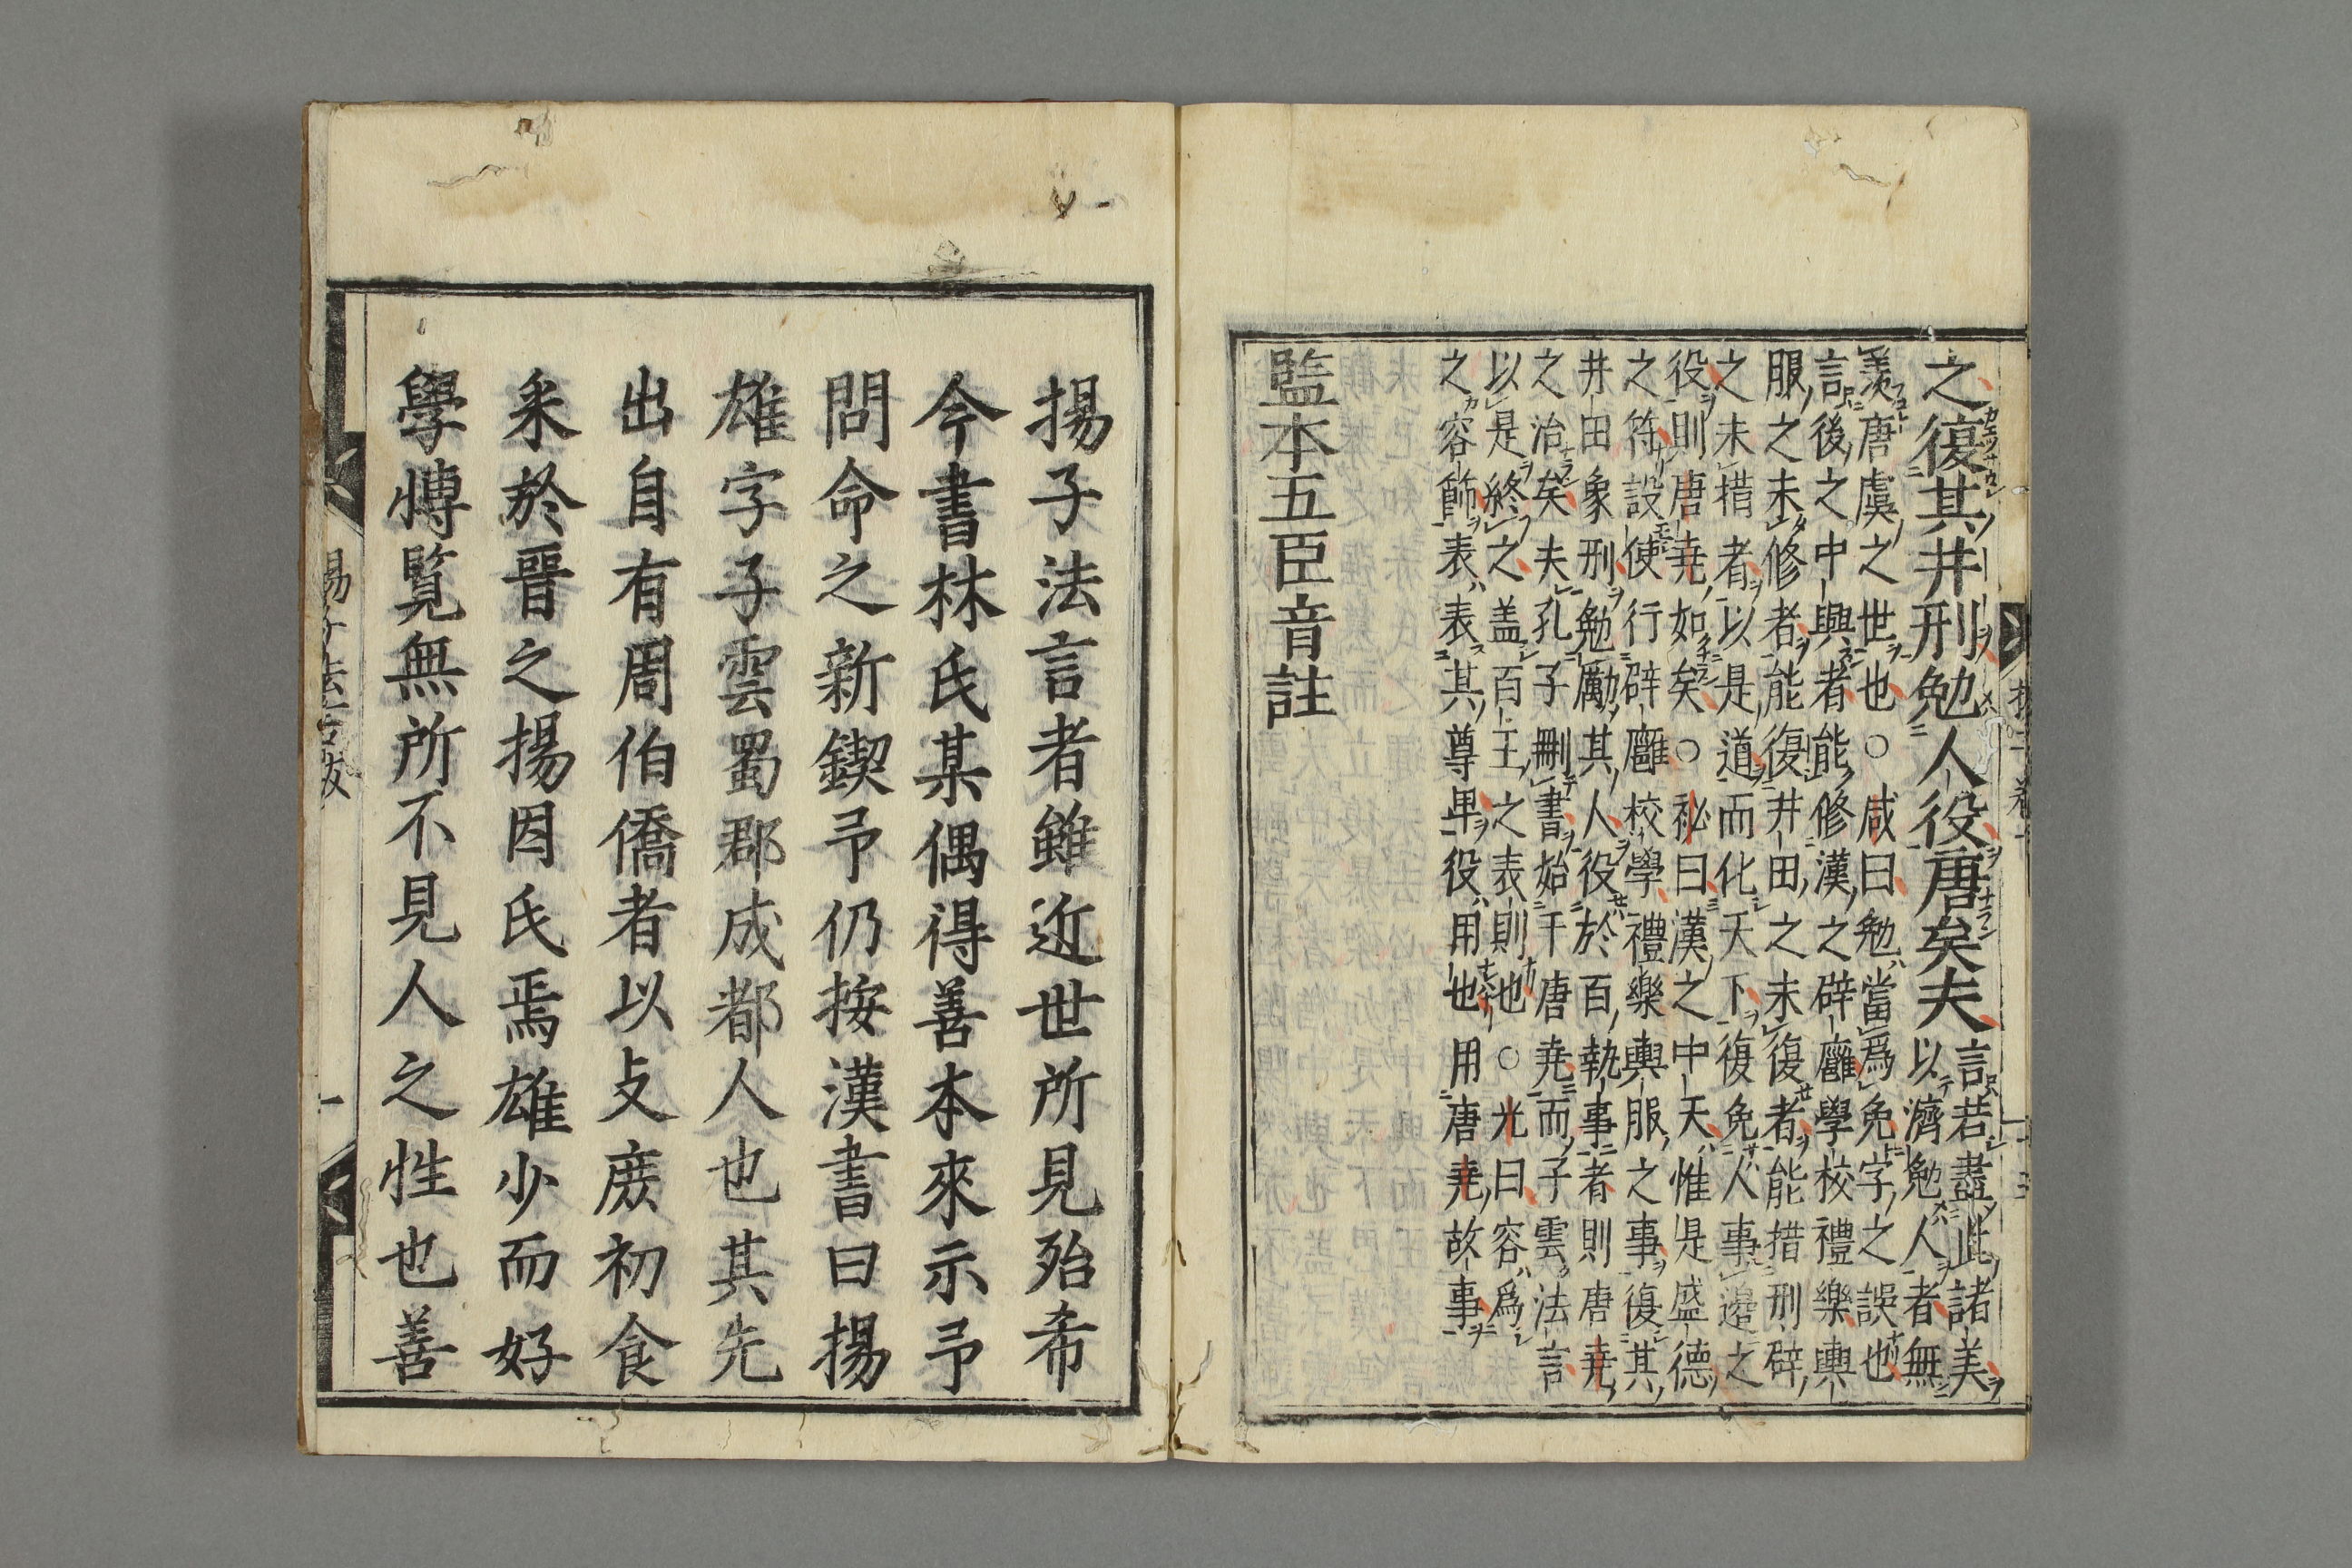 之復其井刑勉人役唐矣夫
言若盡此諸美
以濟勉人者無
羨唐虞之世也○咸曰勉當爲免字之誤也
言後之中興者能修漢之辟廱學校禮樂輿
服之未修者能復井田之未復者能措刑辟
之未措者以是道而化天下復免人事邊之
役則唐堯如矣○祕曰漢之中天惟是盛德
之符設使行辟廱校學禮樂輿服之事復其
井田象刑勉勵其人役於百執事者則唐堯
之治矣夫孔子刪書始于唐堯而子雲法言
以是終之盖百王之表則也○光曰容爲
之容飾表表其尊卑役用也用唐堯故事
監本五臣音註
揚子法言者雖近世所見殆希
今書林氏某偶得善本來示予
問命之新鍥予仍按漢書曰揚
雄字子雲蜀郡成都人也其先
出自有周伯僑者以支庻初食
采於晉之揚因氏焉雄少而好
學愽覧無所不見人之性也善